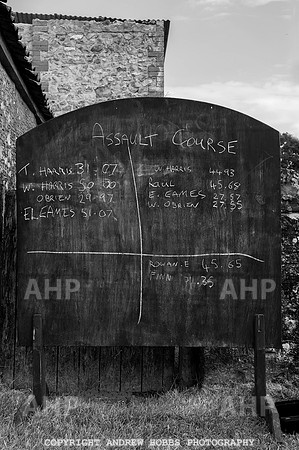 ASSAULT COURSE
T. HARRIS 31.07
W. HARRIS 50.00
OBRIEN 29.97
E. EAMES 51.07
HARRIS 44.93
RAUL 45.65
E. EAMES 27.87
W. OBRIEN 27.55
ROWAN.E 45.65
FINN 71.35
AHP AHP
AHP AHP
COPYRIGHT ANDREW HOBBS PHOTOGRAPHY